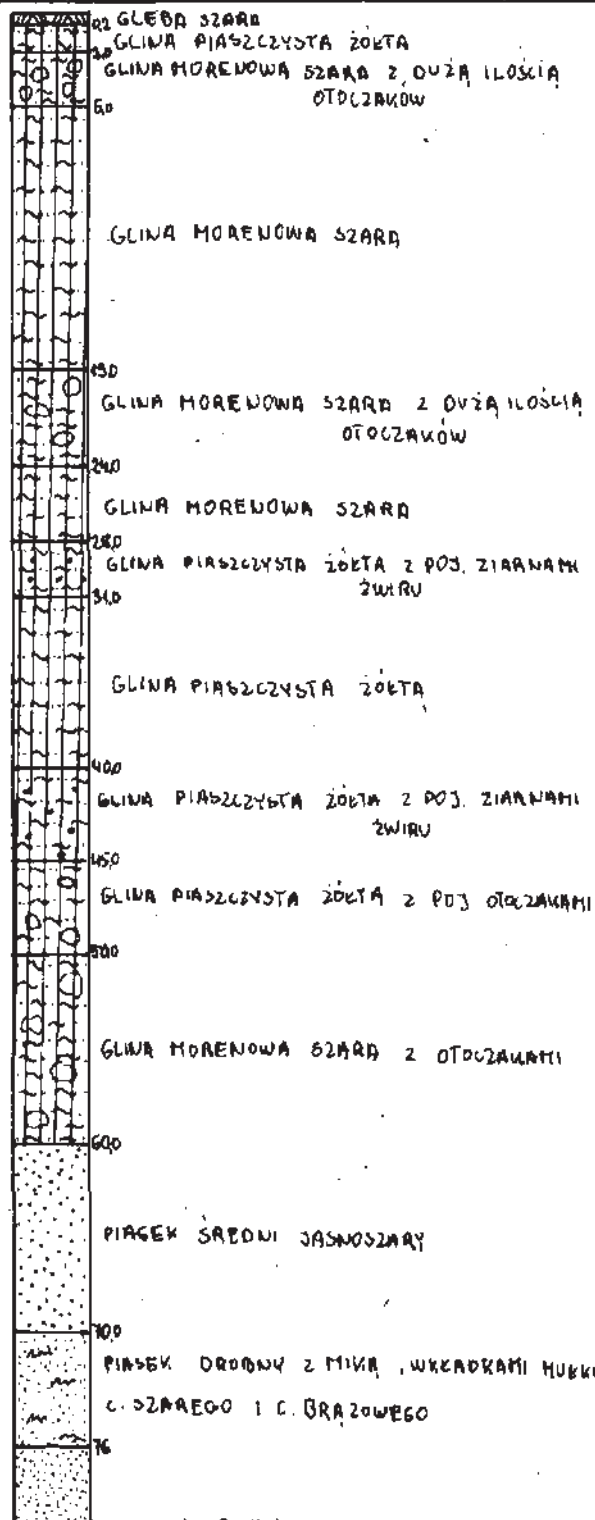 0,2 GLEBA SZARA
GLINA PIASZCZYSTA ŻÓŁTA
3,0
GLINA MORENOWA SZARA Z DUŻĄ ILOŚCIĄ
OTOCZAKÓW
6,0
GLINA MORENOWA SZARA
19,0
GLINA MORENOWA SZARA Z DUŻĄ ILOŚCIĄ
OTOCZAKÓW
24,0
GLINA MORENOWA SZARA
28,0
GLINA PIASZCZYSTA ŻÓŁTA Z POJ. ZIARNAMI
ŻWIRU
31,0
GLINA PIASZCZYSTA ŻÓŁTA
40,0
GLINA PIASZCZYSTA ŻÓŁTA Z POJ. ZIARNAMI
ŻWIRU
45,0
GLINA PIASZCZYSTA ŻÓŁTA Z POJ OTOCZAKAMI
50,0
GLINA MORENOWA SZARA Z OTOCZAKAMI
60,0
PIASEK ŚREDNI JASNOSZARY
70,0
PIASEK DROBNY Z MIKĄ, WKŁADKAMI
C. SZAREGO I C. BRĄZOWEGO
76